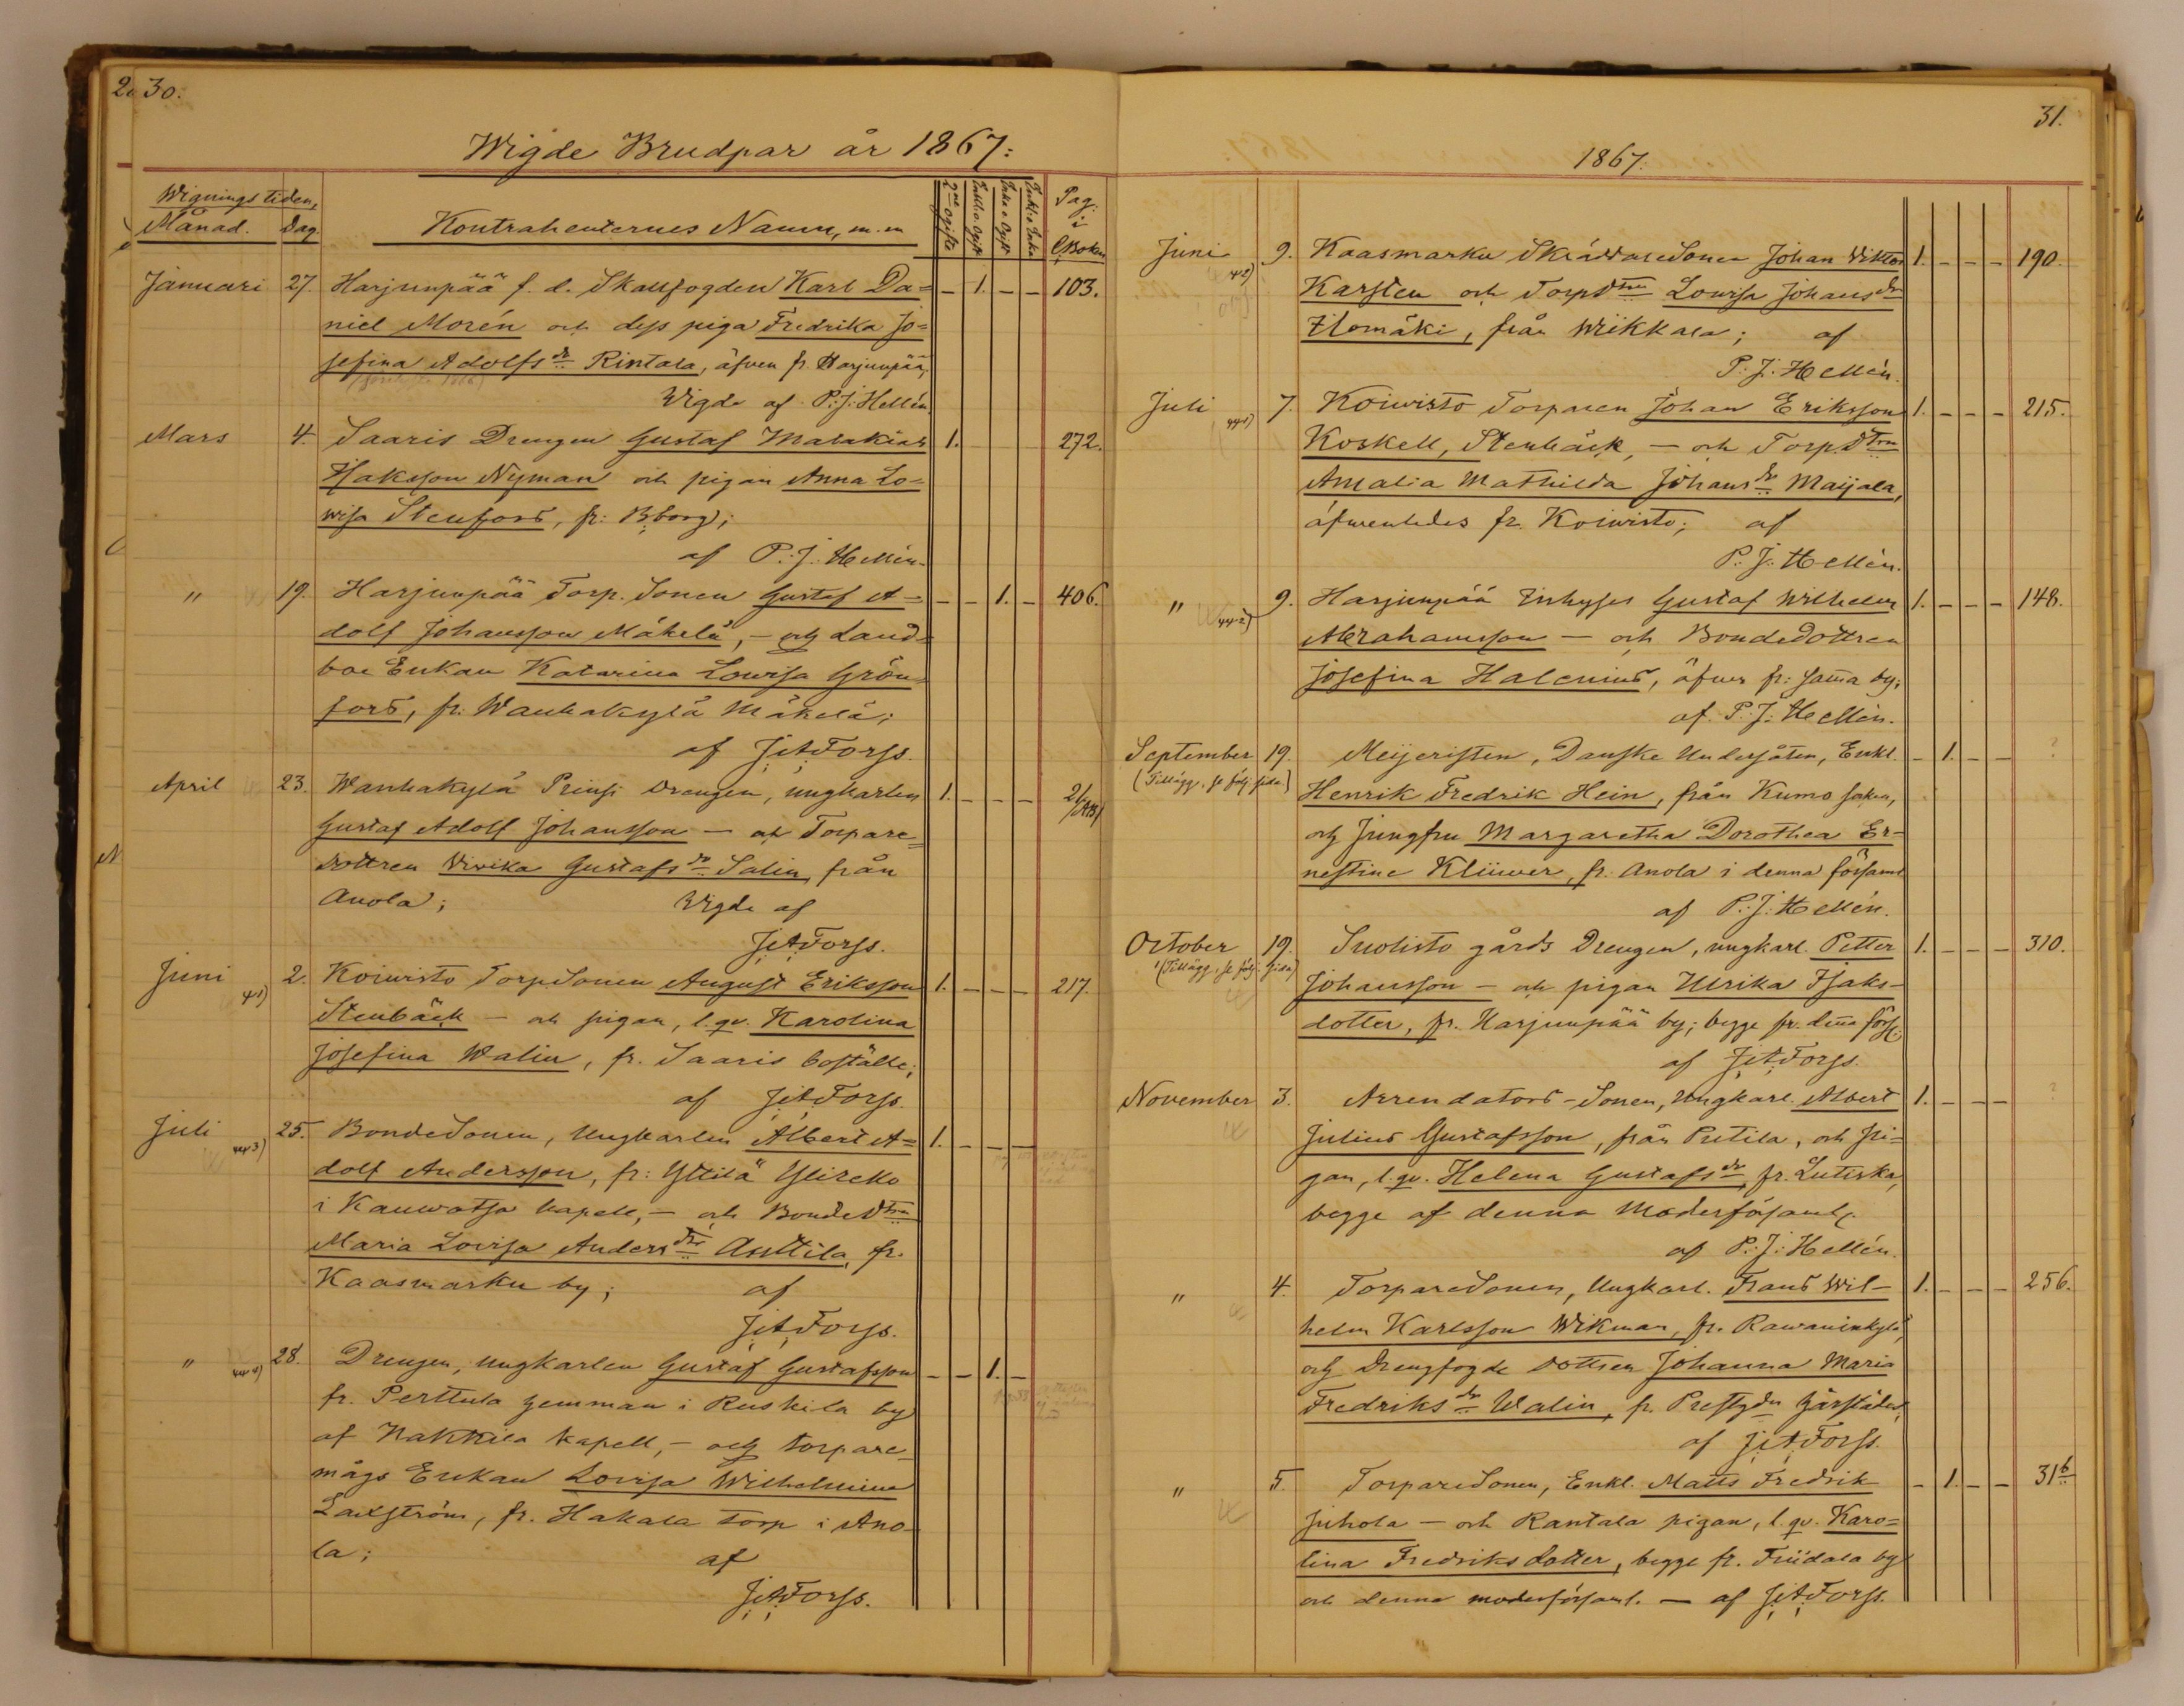 30.
Wigde Brudpar år 1867:
Wignings tiden,
Månad. Dag.
Kontrahenternes Namn, m. m
2ne ogifte
Pag: i C. Boken
Januari 27. Harjunpää f. d. Skallfogden Karl Da= – 1. – – 103.
niel Morén och dess piga Fredrika Jo=
sefina Adolfsdr Rintala, äfven fr. Harjunpää,
Wigde af P. J. Hellén.
Mars 4. Saaris Drengen Gustaf Malakias 1. 272.
Isaksson Nyman och pigan Anna Lo=
wisa Stenfors, fr: B:borg;
af P. J. Hellén.
" 19. Harjunpää Torp. Sonen Gustaf A= – – 1. – 406.
dolf Johansson Mäkelä, – och Land=
boe Enkan Katarina Lowisa Grön=
fors, fr: Wanhakylä Mäkelä;
af J. A. Forss.
April 23. Wanhakylä Prinsi Drengen, ungkarlen 1. – – –
Gustaf Adolf Johansson – och Torpare=
dottren Wivika Gustafsdr Salin, från
Anola; Wigde af
J. A. Forss.
Juni 2. Koiwisto TorpSonen August Eriksson 1. – – – 217.
Stenbäck – och pigan, l. qv. Karolina
Josefina Walin, fr. Saaris boställe;
af J. A. Forss.
Juli 25. BondeSonen, Ungkarlen Albert A= 1. – – –
dolf Andersson, fr: Yttilä Ylirekko
i Kauwatsa kapell, – och BondeDtren
Maria Lovisa Andersdr Anttila, fr.
Kaasmarku by; af
J. A. Forss.
" 28. Drengen, Ungkarlen Gustaf Gustafsson – – 1. –
fr. Perttula hemman i Ruskila by
af Nakkila kapell, – och torpare
mågs Enkan Lovisa Wilhelmina
Laxström, fr. Hakala torp i Ano-
la; af
J. A. Forss.
31.
1867.
Juni 9. Kaasmarku SkräddareSonen Johan Viktor 1. – – – 190.
Karsten och TorpDtren Lowisa Johansdr
Ilomäki, från Wiikkala; af
P. J. Hellén.
Juli 7. Koiwisto Torparen Johan Eriksson 1. – – – 215.
Koskell, Stenbäck, – och Torp.Dtren
Amalia Mathilda Johansdr Maijala,
äfwenledes fr. Koiwisto; af
P. J. Hellén.
" 9. Harjunpää Inhyses Gustaf Wilhelm 1. – – – 148.
Abrahamsson – och BondeDottren
Josefina Halenius, äfven fr: samma by;
af P. J. Hellén.
September 19. Meijeristen, Danske Undersåten, Enkl. – 1. – – ?
(Tillägg, se följ. sida) Henrik Fredrik Hein, från Kumo soken,
och Jungfru Margaretha Dorothea Er=
nestine Klüwer, fr. Anola i denna församl
af P. J. Hellén.
October 19. Suolisto gårds Drengen, ungkarl. Petter 1. – – – 310.
(Tillägg, se följ. sida) Johansson – och pigan Ulrika Isaks-
dotter, fr. Harjunpää by; begge fr. denna förs:
af J. A. Forss.
November 3. Arrendators-Sonen, Ungkarl. Albert 1. – – – ?
Julius Gustafsson, från Pietilä, och pi-
gan, l. qv. Helena Gustafsdr, fr.
begge af denna Moderförsaml.
af P. J. Hellén.
" 4. TorpareSonen, Ungkarl. Frans Wil- 1. – – – 256.
helm Karlsson Wikman, fr. Rawaninkylä,
och Drengfogde dottren Johanna Maria
Fredriksdr Walin, fr.
af J. A. Forss.
" 5. TorpareSonen, Enkl. Matts Fredrik – 1. – – 31b
Juhola – och Rantala pigan, l. qv. Karo=
lina Fredriksdotter, begge fr. Friidala by
och denna moderförsaml. – af J. A. Forss.